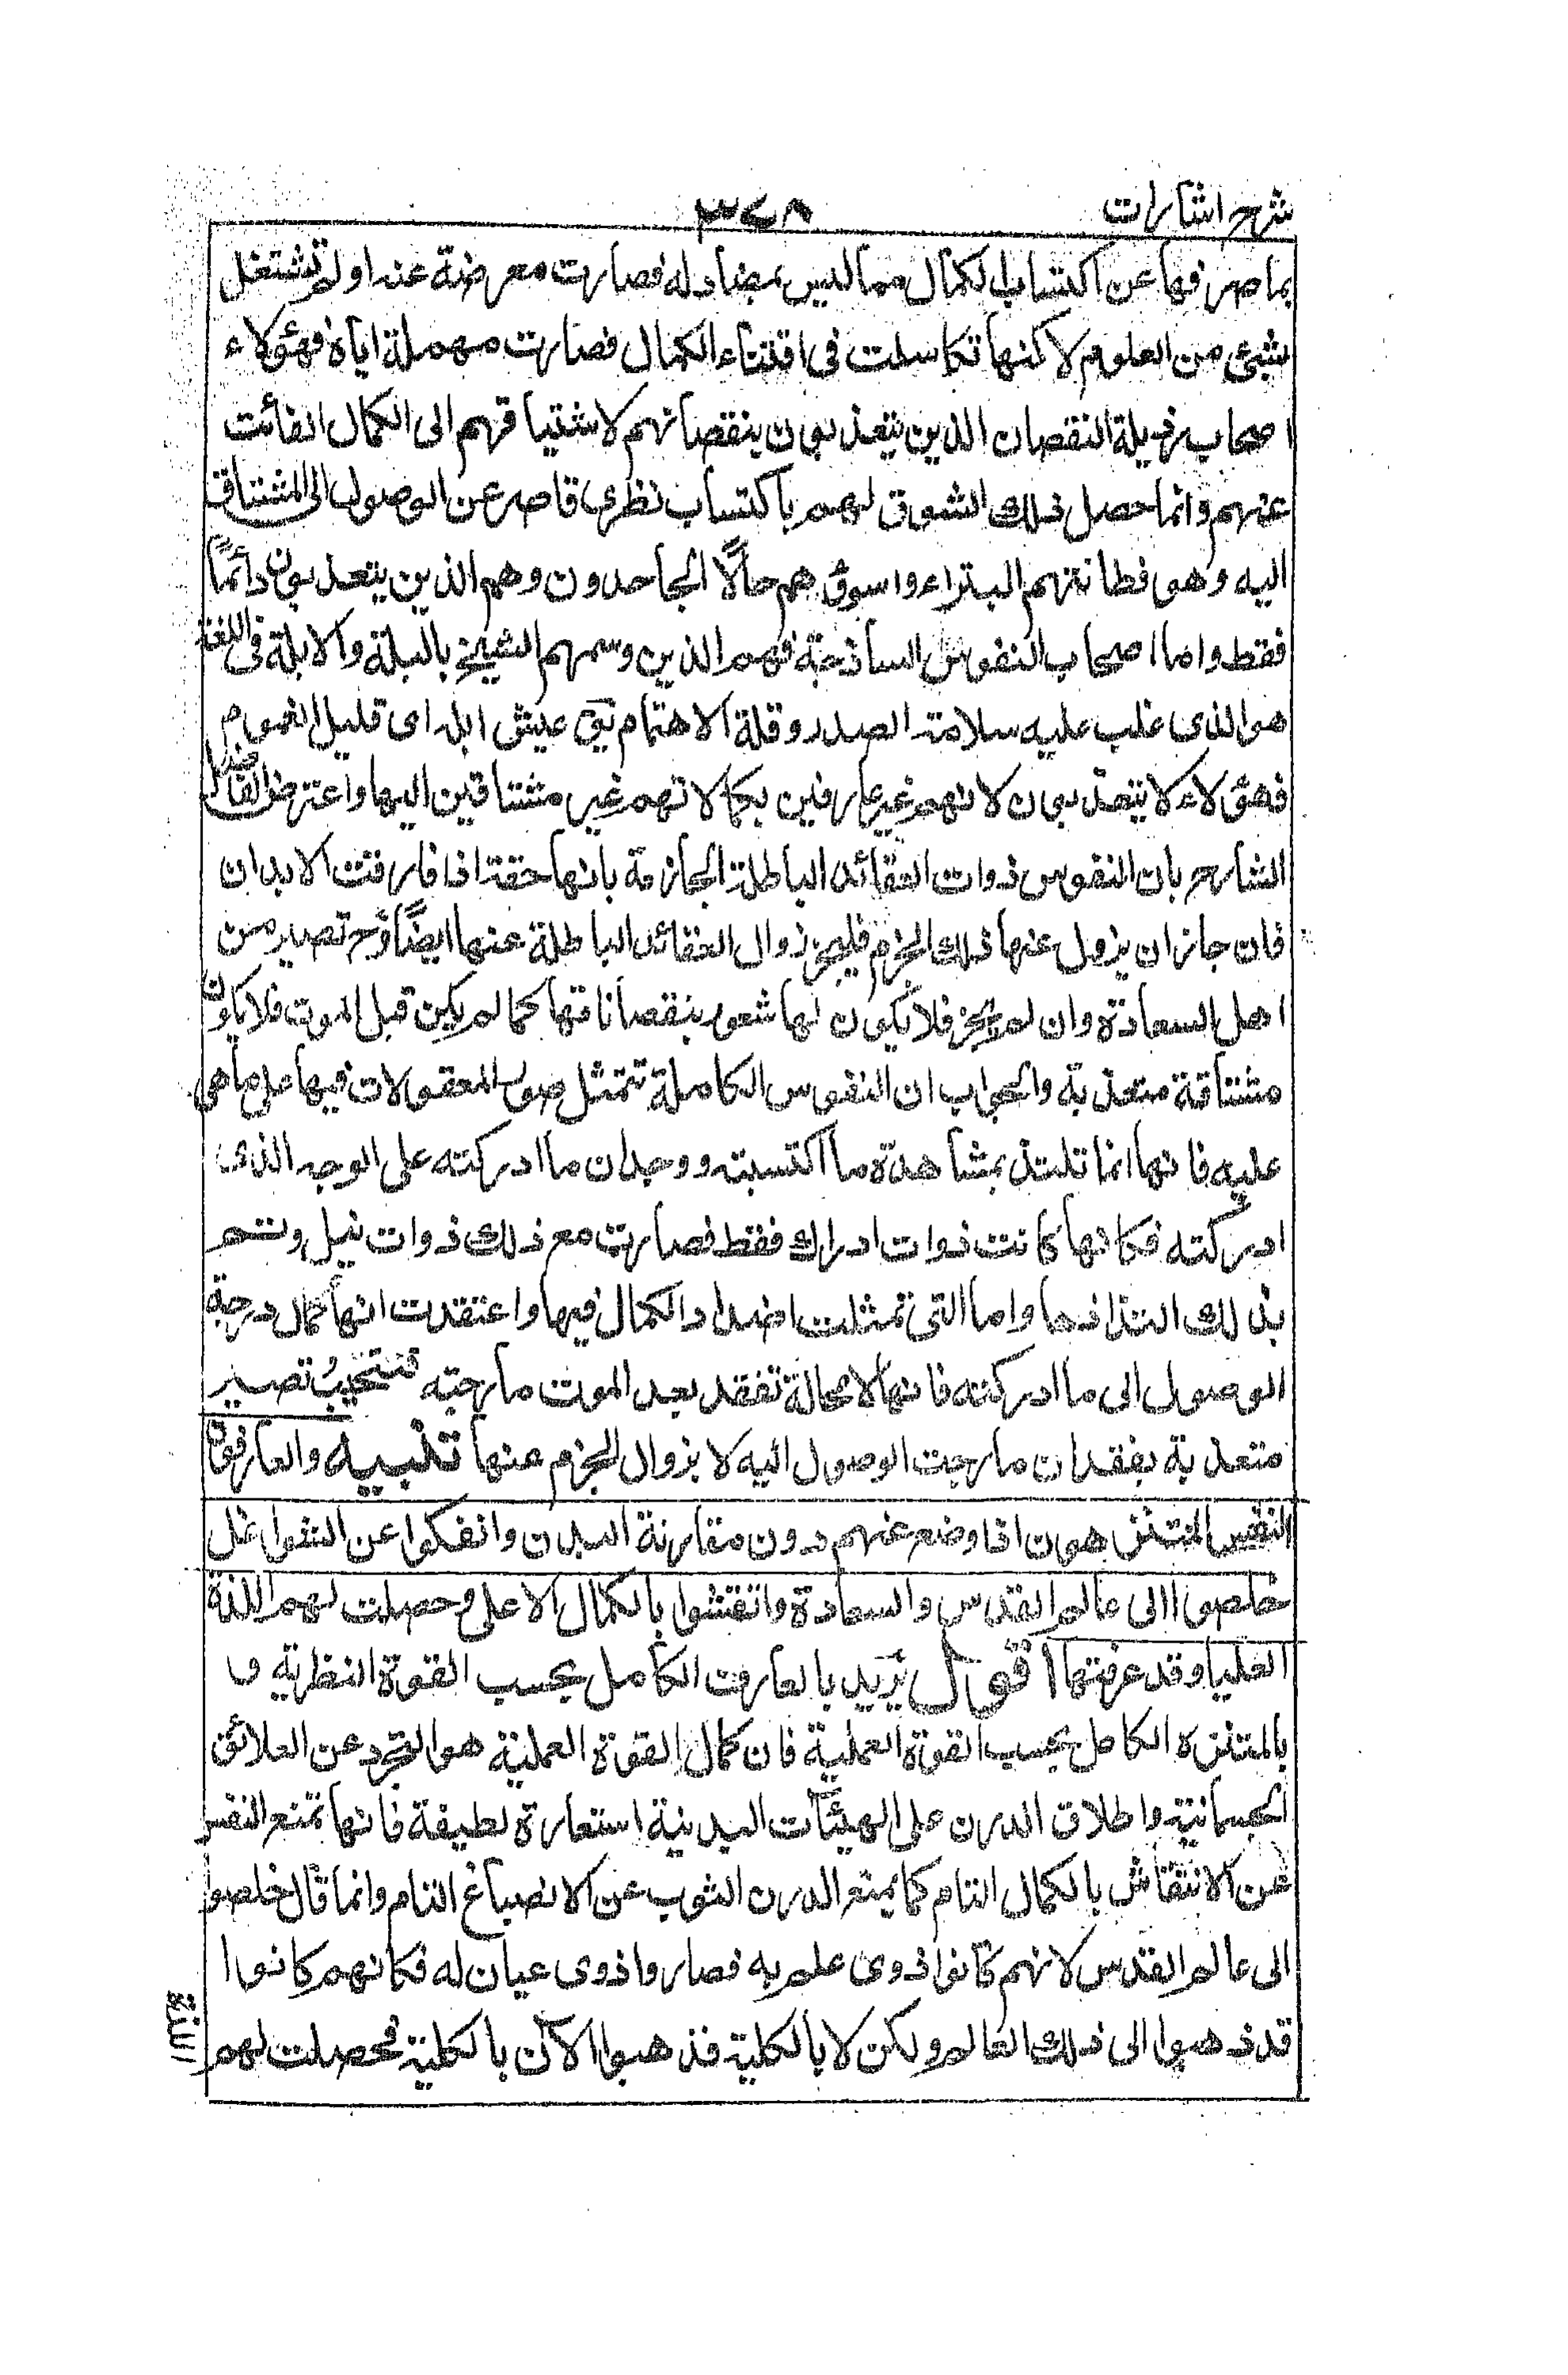 شرح اشارات ٣٧٨
بما صرفها عن اكتساب الكمال مما ليس بمضاد له فصارت معرضة عنه او لم تشتغل
بشئ من العلوم لاكنها تكاسلت فى اقتناء الكمال فصارت مهملة اياه فهؤلاء
اصحاب رذيلة النقصان الذين يتعذبون بنقصانهم لاشتياقهم الى الكمال الفائت
عنهم وانما حصل ذلك الشوق لهم باكتساب نظرى قاصر عن الوصول الى المشتاق
اليه وهو فطانتهم البتراء واسوؤهم حالًا الجاحدون وهم الذين يتعذبون دائمًا
فقط واما اصحاب النفوس الساذجة فهم الذين وسمهم الشيخ بالبلة والابلة فى اللغة
هو الذى غلب عليه سلامة الصدر وقلة الاهتمام يق عيش ابله اى قليل الغموم
فهؤلاء لا يتعذبون لانهم غير عارفين بكمالاتهم غير مشتاقين اليها واعترض الفاضل
الشارح بان النفوس ذوات العقائد الباطلة الجازمة بانها حقة اذا فارقت الابدان
فان جاز ان يزول عنها ذلك الجزم فليجز زوال العقائد الباطلة عنها ايضًا وح تصير من
اهل السعادة وان لم يجز فلا يكون لها شعور بنقصاناتها كما لم يكن قبل الموت فلا يكون
مشتاقة متعذبة والجواب ان النفوس الكاملة تتمثل صور المعقولات فيها على ما هى
عليه فانها انما تلتذ بمشاهدة ما اكتسبته ووجدان ما ادركته على الوجه الذى
ادركته فكانها كانت ذوات ادراك فقط فصارت مع ذلك ذوات نيل وتتم
بذلك التذاذها واما التى تمثلت اضداد الكمال فيها واعتقدت انها كمال درجة
الوصول الى ما ادركته فانها لا محالة تفقد بعد الموت ما رجته فتخيب تصير
متعذبة بفقدان ما رجت الوصول اليه لا بزوال الجزم عنها تنبيه والعارفون
المتنزهون اذا وضع عنهم درن مقارنة البدن وانفكوا عن الشواغل
خلصوا الى عالم القدس والسعادة وانتقشوا بالكمال الاعلى وحصلت لهم اللذة
العليا وقد عرفتها اقول يريد بالعارف الكامل بحسب القوة النظرية و
بالمتنزه الكامل بحسب القوة العملية فان كمال القوة العملية هو التجرد عن العلائق
الجسمانية واطلاق الدرن على الهيئات البدنية استعارة لطيفة فانها تمنع النفس
عن الانتقاش بالكمال التام كما يمنع الدرن الثوب عن الانصباغ التام وانما قال خلصوا
الى عالم القدس لانهم كانوا ذوى علم به فصاروا ذوى عيان له فكانهم كانوا
قد ذهبوا الى ذلك العالم ولكن لا بالكلية فذهبوا الآن بالكلية فحصلت لهم
اللذة